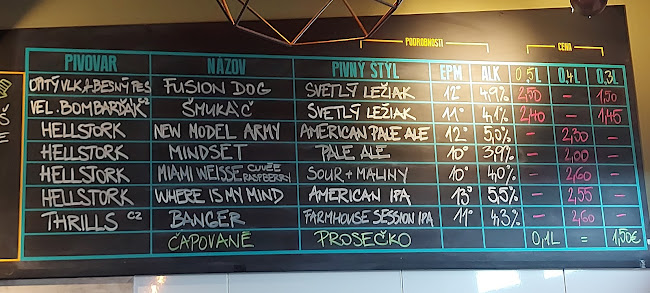 PODROBNOSTI CENA
PIVOVAR NÁZOV PIVNÝ ŠTÝL EPM ALK 0,5L 0,4L 0,3L
OPITÝ VLK A BESNÝ PES FUSION DOG SVETLÝ LEŽIAK 12° 4,9% 2,50 – 1,50
VEL. BOMBARĎÁK CZ ŠMUKÁČ SVETLÝ LEŽIAK 11° 4,1% 2,40 – 1,45
HELLSTORK NEW MODEL ARMY AMERICAN PALE ALE 12° 5,0% – 2,30 –
HELLSTORK MINDSET PALE ALE 10° 3,9% – 2,00 –
HELLSTORK MIAMI WEISSE CUVÉE RASPBERRY SOUR + MALINY 10° 4,0% – 2,60 –
HELLSTORK WHERE IS MY MIND AMERICAN IPA 13° 5,5% – 2,55 –
THRILLS CZ BANGER FARMHOUSE SESSION IPA 11° 4,3% – 2,60 –
ČAPOVANÉ PROSEČKO 0,1L = 1,50€